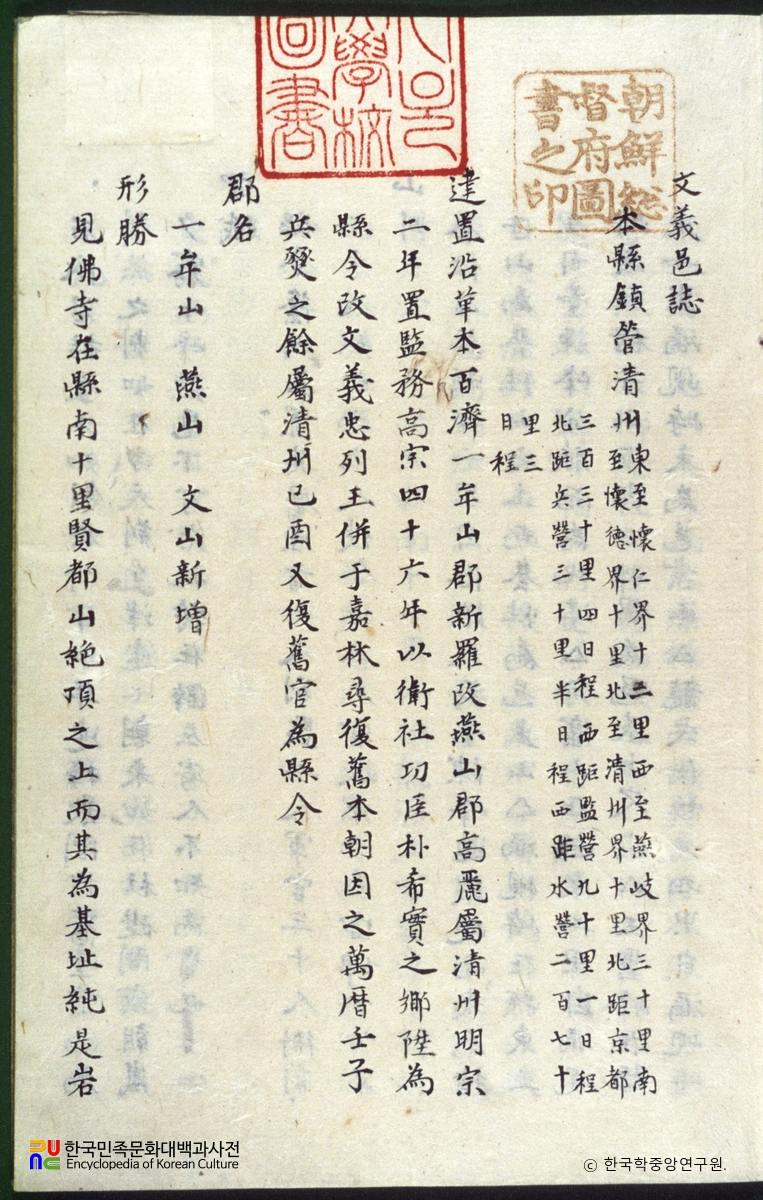 文義邑誌
本縣鎮管清州東至懷仁界十二里西至燕岐界三十里南
至懷德界十里北至清州界十里北距京都
三百三十里四日程西距監營九十里一日程
北距兵營三十里半日程西距水營二百七十
里三
日程
建置沿革本百濟一牟山郡新羅改燕山郡高麗屬清州明宗
二年置監務高宗四十六年以衛社功臣朴希實之鄉陞為
縣令改文義忠列王併于嘉林尋復舊本朝因之萬曆壬子
兵燹之餘屬清州己酉又復舊官為縣令
郡名
一牟山 燕山 文山新增
形勝
見佛寺在縣南十里賢都山絕頂之上而其為基址純是岩
朝鮮総
督府圖
書之印
學校
圖書
한국민족문화대백과사전
Encyclopedia of Korean Culture
© 한국학중앙연구원.